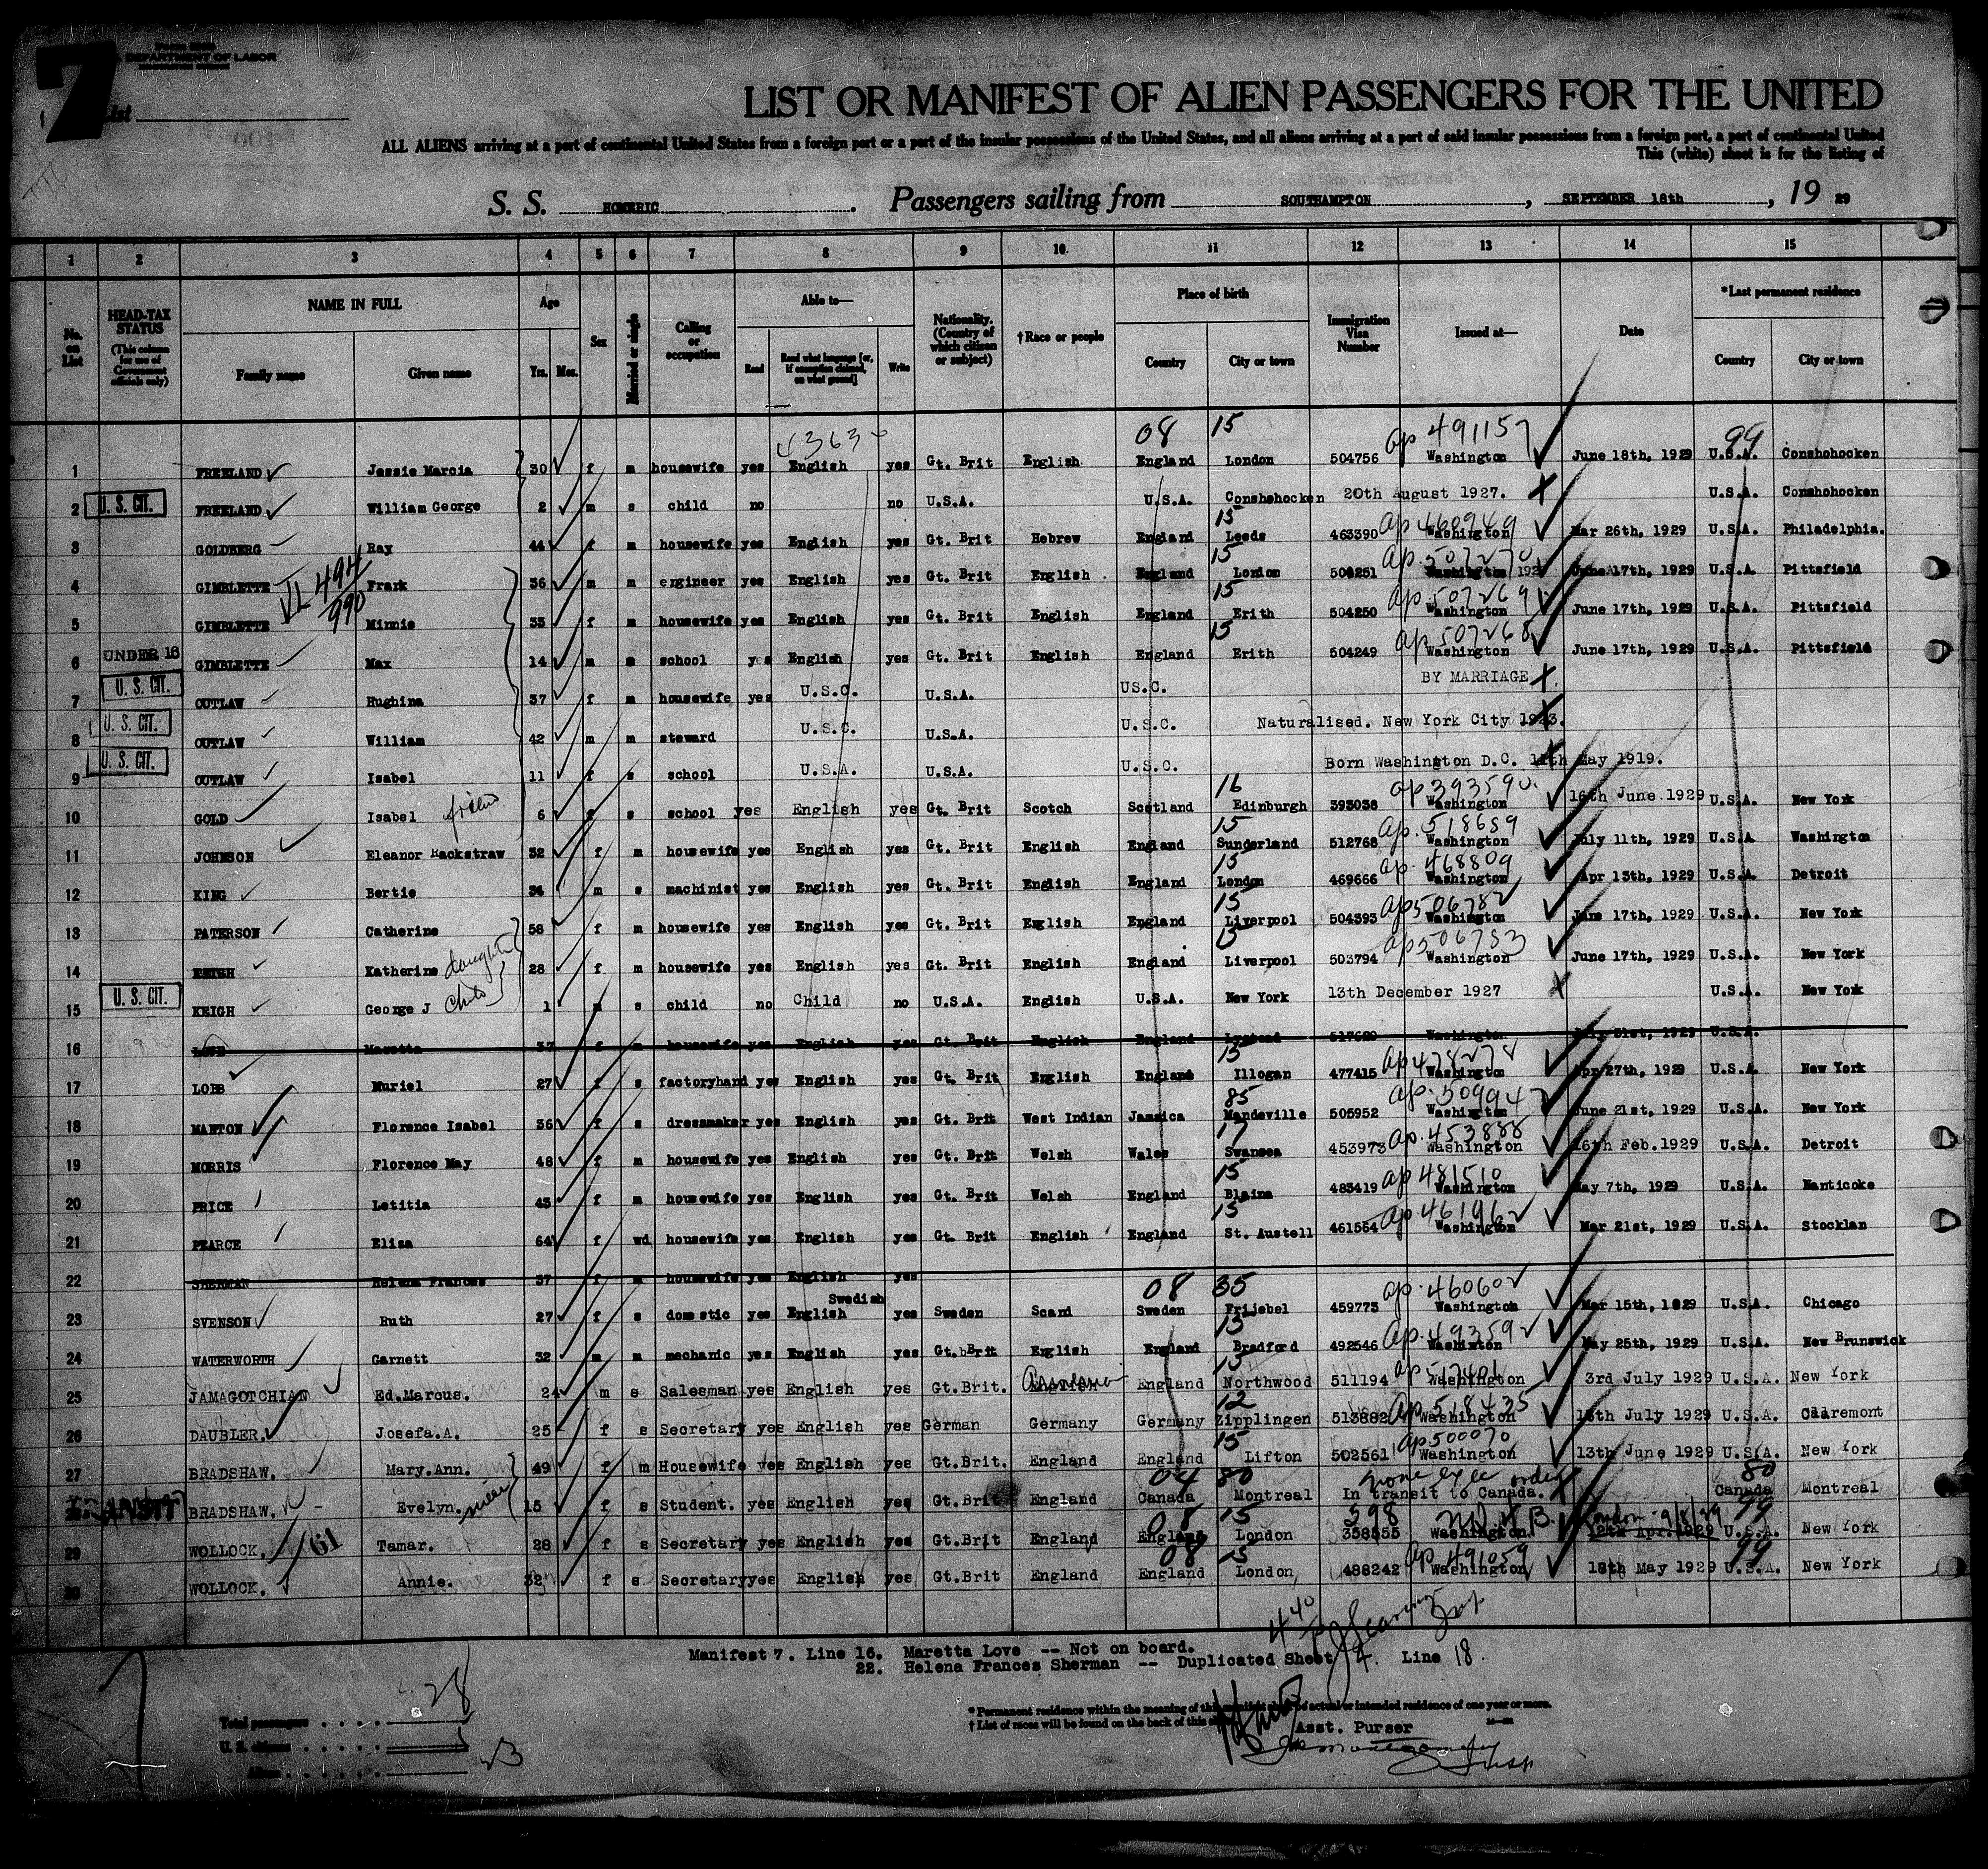 7
DEPARTMENT OF LABOR
List
LIST OR MANIFEST OF ALIEN PASSENGERS FOR THE UNITED
ALL ALIENS arriving at a port of continental United States from a foreign port or a port of the insular possessions of the United States, and all aliens arriving at a port of said insular possessions from a foreign port, a port of continental United
This (white) sheet is for the listing of
S. S. HOMERIC. Passengers sailing from SOUTHAMPTON, SEPTEMBER 18th, 19 29
1 2 3 4 5 6 7 8 9 10 11 12 13 14 15
No. on List
HEAD-TAX STATUS (This column for use of Government officials only)
NAME IN FULL Family name Given name
Age Yrs. Mos.
Sex
Married or single
Calling or occupation
Able to— Read Read what language [or, if exemption claimed, on what ground] Write
Nationality. (Country of which citizen or subject)
†Race or people
Place of birth Country City or town
Immigration Visa Number
Issued at—
Date
*Last permanent residence Country City or town
08 15 99
1 FREELAND Jessie Marcia 30 f m housewife yes English yes Gt. Brit English England London 504756 ap 491157 Washington June 18th, 1929 U.S.A. Conshohocken
2 U. S. CIT. FREELAND William George 2 m s child no no U.S.A. U.S.A. Conshohocken 20th August 1927. U.S.A. Conshohocken
3 GOLDBERG Ray 44 f m housewife yes English yes Gt. Brit Hebrew England 15 Leeds 463390 ap 460949 Washington Mar 26th, 1929 U.S.A. Philadelphia.
4 GIMBLETTE 494/990 Frank 36 m m engineer yes English yes Gt. Brit English England 15 London 504251 ap 507270 Washington June 17th, 1929 U.S.A. Pittsfield
5 GIMBLETTE Minnie 35 f m housewife yes English yes Gt. Brit English England 15 Erith 504250 ap 507269 Washington June 17th, 1929 U.S.A. Pittsfield
6 UNDER 16 GIMBLETTE Max 14 m m school yes English yes Gt. Brit English England 15 Erith 504249 ap 507268 Washington June 17th, 1929 U.S.A. Pittsfield
7 U. S. CIT. OUTLAW Hughina 37 f m housewife yes U.S.C. U.S.A. US.C. BY MARRIAGE.
8 U. S. CIT. OUTLAW William 42 m m steward U.S.C. U.S.A. U.S.C. Naturalised. New York City 1923.
9 U. S. CIT. OUTLAW Isabel 11 f s school U.S.A. U.S.A. U.S.C. Born Washington D.C. 11th May 1919.
10 GOLD Isabel friend 6 f s school yes English yes Gt. Brit Scotch Scotland 16 Edinburgh 393038 ap 393590. Washington 16th June 1929 U.S.A. New York
11 JOHNSON Eleanor Rackstraw 32 f m housewife yes English yes Gt. Brit English England 15 Sunderland 512768 ap. 518659 Washington July 11th, 1929 U.S.A Washington
12 KING Bertie 34 m s machinist yes English yes Gt. Brit English England 15 London 469666 ap. 468809 Washington Apr 13th, 1929 U.S.A. Detroit
13 PATERSON Catherine 58 f m housewife yes English yes Gt. Brit English England 15 Liverpool 504393 ap 506782 Washington June 17th, 1929 U.S.A. New York
14 KEIGH Katherine daughter 28 f m housewife yes English yes Gt. Brit English England 15 Liverpool 503794 ap 506783 Washington June 17th, 1929 U.S.A. New York
15 U. S. CIT. KEIGH George J child 1 m s child no Child no U.S.A. English U.S.A. New York 13th December 1927 U.S.A. New York
16 LOVE Maretta 37 f m housewife yes English yes Gt. Brit English England Washington July 31st, 1929 U.S.A.
17 LOBB Muriel 27 f s factoryhand yes English yes Gt. Brit English England 15 Illogan 477415 ap 478278 Washington Apr 27th, 1929 U.S.A. New York
18 MANTON Florence Isabel 36 f s dressmaker yes English yes Gt. Brit West Indian Jamaica 85 Mandeville 505952 ap. 509947 Washington June 21st, 1929 U.S.A. New York
19 MORRIS Florence May 48 f m housewife yes English yes Gt. Brit Welsh Wales 17 Swansea 453973 ap. 453888 Washington 16th Feb. 1929 U.S.A. Detroit
20 PRICE Letitia 45 f m housewife yes English yes Gt. Brit Welsh England 15 Blaina 483419 ap 481510 Washington May 7th, 1929 U.S.A. Nanticoke
21 PEARCE Eliza 64 f wd housewife yes English yes Gt. Brit English England 15 St. Austell 461554 ap 461962 Washington Mar 21st, 1929 U.S.A. Stocklan
22 SHERMAN Helena Frances 37 f m housewife yes English yes
23 SVENSON Ruth 27 f s domestic yes English Swedish yes Sweden Scand 08 Sweden 35 Frijebel 459773 ap. 460602 Washington Mar 15th, 1929 U.S.A. Chicago
24 WATERWORTH Garnett 32 m m mechanic yes English yes Gt. Brit English England 15 Bradford 492546 ap. 493592 Washington May 25th, 1929 U.S.A. New Brunswick
25 JAMAGOTCHIAN Ed.Marcus. 24 m s Salesman yes English yes Gt.Brit. England 15 Northwood 511194 ap 517401 Washington 3rd July 1929 U.S.A. New York
26 DAUBLER. Josefa.A. 25 f s Secretary yes English yes German Germany Germany 12 Zipplingen 513882 ap. 518435 Washington 15th July 1929 U.S.A. Claremont
27 BRADSHAW. Mary.Ann. 49 f m Housewife yes English yes Gt.Brit. England England 15 Lifton 502561 ap 500070 Washington 13th June 1929 U.S.A. New York
BRADSHAW. Evelyn. 15 f s Student. yes English yes Gt.Brit England 04 Canada 80 Montreal In transit to Canada. 80 Canada Montreal
29 WOLLOCK. 61 Tamar. 28 f s Secretary yes English yes Gt.Brit England 08 England 15 London 398 358555 Washington. London 9/8/29 12th Apr.1929 99 U.S.A. New York
WOLLOCK. Annie. 32 f s Secretary yes English yes Gt.Brit England 08 England 15 London, 488242 ap 491059 Washington 18th May 1929 99 U.S.A. New York
Manifest 7. Line 16. Maretta Love -- Not on board.
22. Helena Frances Sherman -- Duplicated Sheet 4. Line 18.
Total passengers . . . . . 28
U. S. citizens . . . . . 5
Aliens . . . . . 23
* Permanent residence within the meaning of this manifest shall be actual or intended residence of one year or more.
† List of races will be found on the back of this sheet.
Asst. Purser
Insp